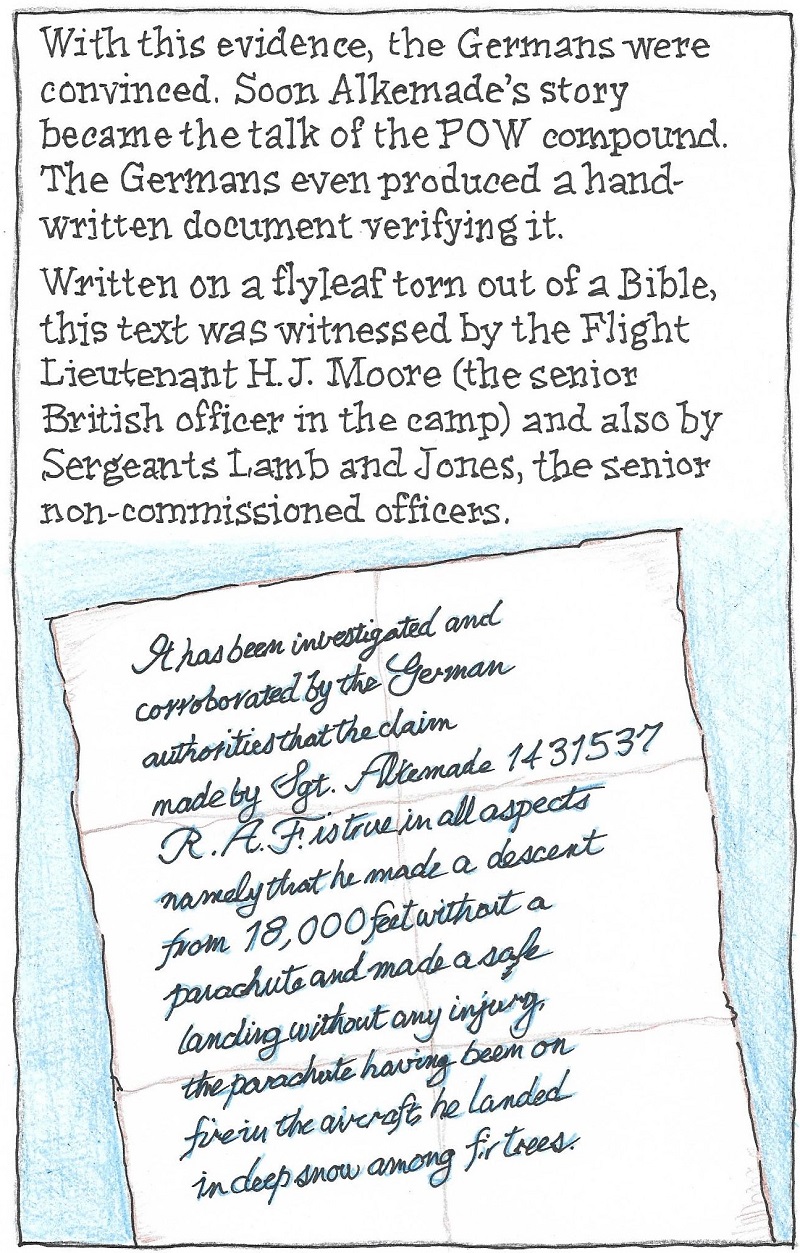 With this evidence, the Germans were
convinced. Soon Alkemade's story
became the talk of the POW compound.
The Germans even produced a hand-
written document verifying it.
Written on a flyleaf torn out of a Bible,
this text was witnessed by the Flight
Lieutenant H.J. Moore (the senior
British officer in the camp) and also by
Sergeants Lamb and Jones, the senior
non-commissioned officers.
It has been investigated and
corroborated by the German
authorities that the claim
made by Sgt. Alkemade 1431537
R.A.F. is true in all aspects
namely that he made a descent
from 18,000 feet without a
parachute and made a safe
landing without any injury,
the parachute having been on
fire in the aircraft, he landed
in deep snow among fir trees.